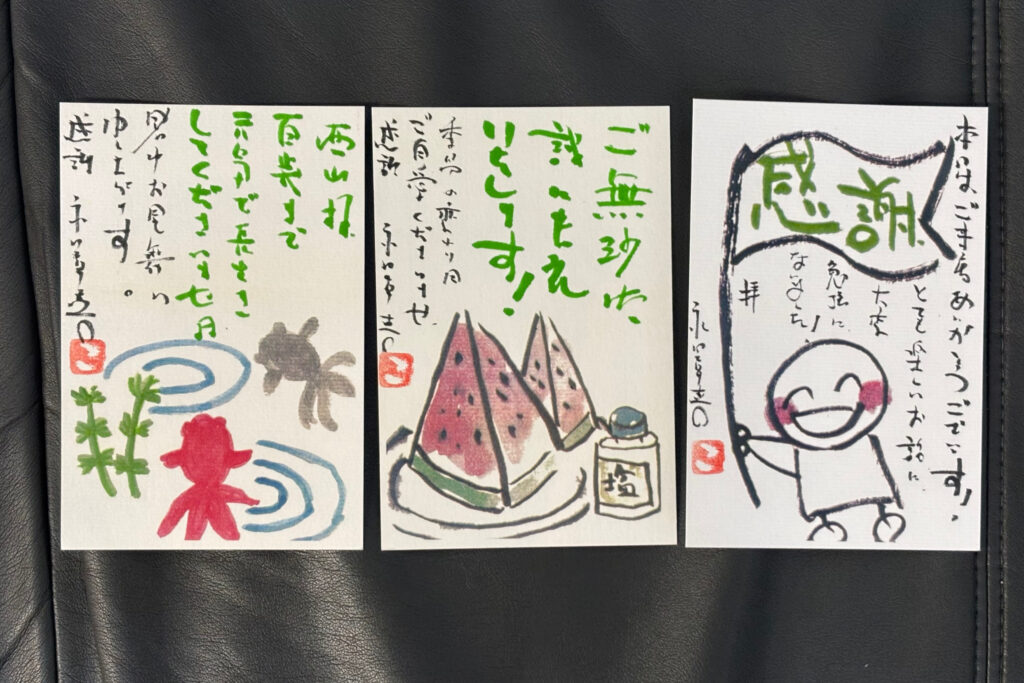 西山様
百歳まで
元気で長生き
してくださいませ
暑中お見舞い
申し上げます。
感謝
ご無沙汰
いたします!
季節の変わり目
ご自愛くださいませ
感謝
塩
感謝
本日は、ありがとうございます!
とても楽しいお話に、
大変
勉強に
なりました!
拝